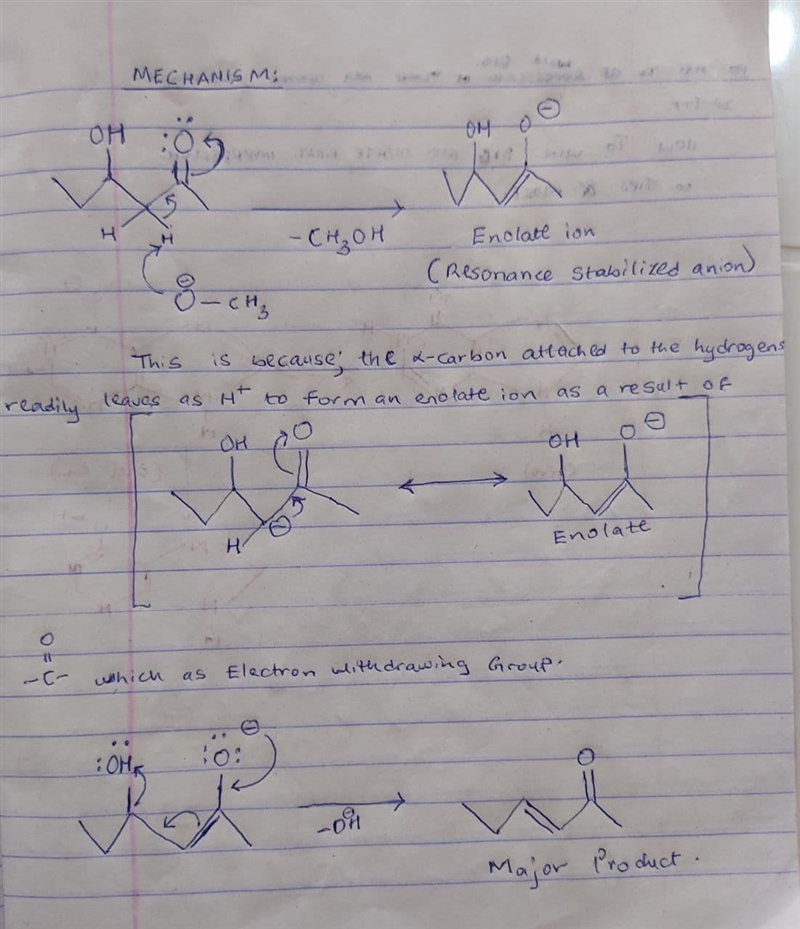 MECHANISM:
OH :Ö
H H
⊖
O - CH3
-CH3OH
OH O ⊖
Enolate ion
(Resonance stabilized anion)
This is because; the α-carbon attached to the hydrogens
readily leaves as H+ to form an enolate ion as a result of
OH O
H ⊖
OH O ⊖
Enolate
O
||
-C- which as Electron withdrawing Group.
:ÖH :Ö: ⊖
-O⊖H
O
Major Product.